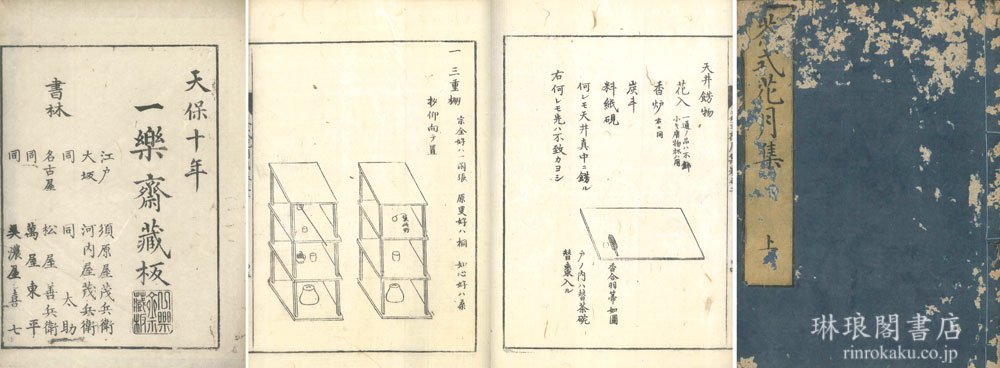 天保十年
一樂齋藏板
書林
江戸 須原屋茂兵衛
大坂 河内屋茂兵衛
同 同 太助
名古屋 松屋善兵衛
同 萬屋東平
同 美濃屋喜七
天井錺物
花入
香炉 右ニ同
炭斗
料紙硯
何レモ天井真中ニ錺ル
右何レモ先ハ不致カヨシ
香合羽箒如圖
戸ノ内ハ替茶碗
替棗入ル
一 三重棚 宗全好ハ一閑張 原叟好ハ桐 如心好ハ桑
杓仰向テ置
花月集
上
琳琅閣書店
rinrokaku.co.jp